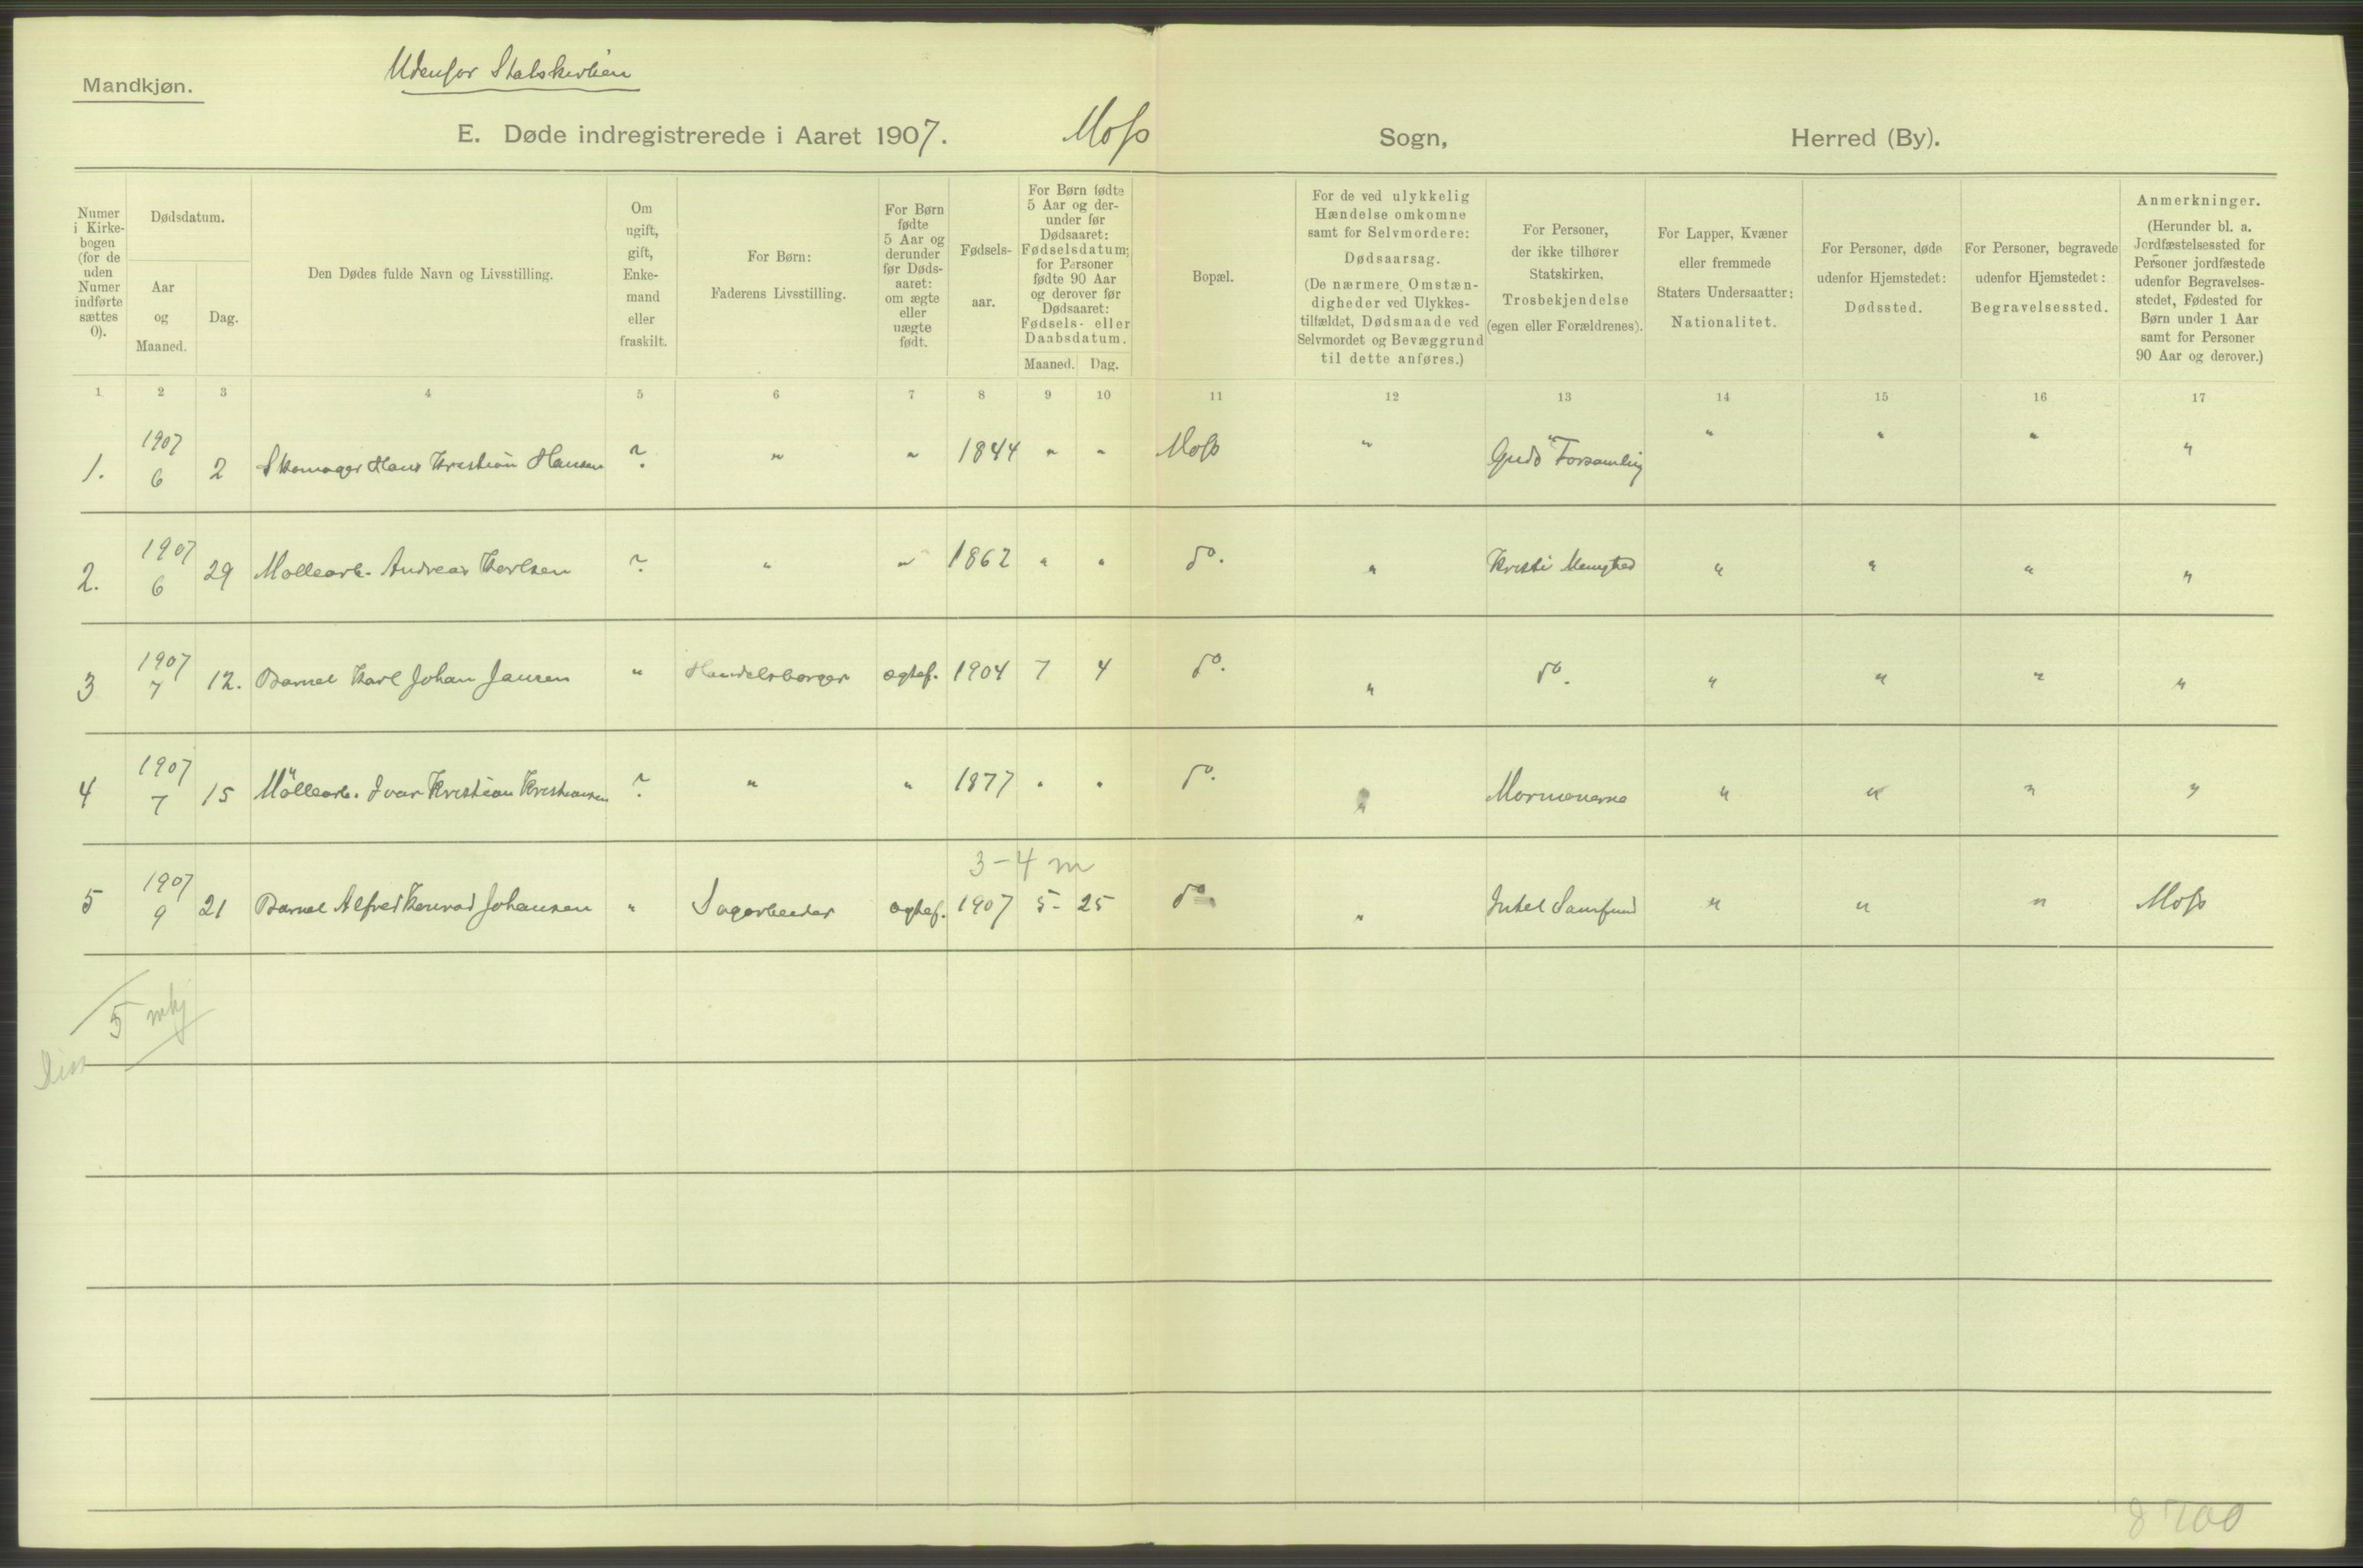 Mandkjøn.
Udenfor Statskirken
E. Døde indregistrerede i Aaret 1907.
Moss
Sogn,
Herred (By).
Numer i Kirke-bogen (for de uden Numer indførte sættes 0).
Dødsdatum.
Aar og Maaned.
Dag.
Den Dødes fulde Navn og Livsstilling.
Om ugift, gift, Enke-mand eller fraskilt.
For Børn:
Faderens Livsstilling.
For Børn fødte 5 Aar og derunder før Døds-aaret: om ægte eller uægte født.
Fødsels-aar.
For Børn fødte 5 Aar og der-under før Dødsaaret: Fødselsdatum; for Personer fødte 90 Aar og derover før Dødsaaret: Fødsels- eller Daabsdatum.
Maaned. Dag.
Bopæl.
For de ved ulykkelig Hændelse omkomne samt for Selvmordere:
Dødsaarsag.
(De nærmere Omstæn-digheder ved Ulykkes-tilfældet, Dødsmaade ved Selvmordet og Bevæggrund til dette anføres.)
For Personer, der ikke tilhører Statskirken, Trosbekjendelse (egen eller Forældrenes).
For Lapper, Kvæner eller fremmede Staters Undersaatter: Nationalitet.
For Personer, døde udenfor Hjemstedet: Dødssted.
For Personer, begravede udenfor Hjemstedet: Begravelsessted.
Anmerkninger.
(Herunder bl. a. Jordfæstelsessted for Personer jordfæstede udenfor Begravelses-stedet, Fødested for Børn under 1 Aar samt for Personer 90 Aar og derover.)
1 2 3 4 5 6 7 8 9 10 11 12 13 14 15 16 17
1. 1907 6 2 Skomager Hans Kristian Hansen ? " " 1844 " " Moss " Guds Forsamling " " " "
2. 1907 6 29 Møllearb. Andreas Karlsen ? " " 1862 " " do. " Kristi Menighed " " " "
3 1907 7 12. Barnet Karl Johan Jansen " Handelsborger ægtef. 1904 7 4 do. " do. " " " "
4 1907 7 15 Møllearb. Ivar Kristian Kristiansen ? " " 1877 " " do. " Mormonerne " " " "
3-4 m
5 1907 9 21 Barnet Alfred Konrad Johansen " Sagarbeider ægtef. 1907 5- 25 do " Intet Samfund " " " Moss
5 mkj